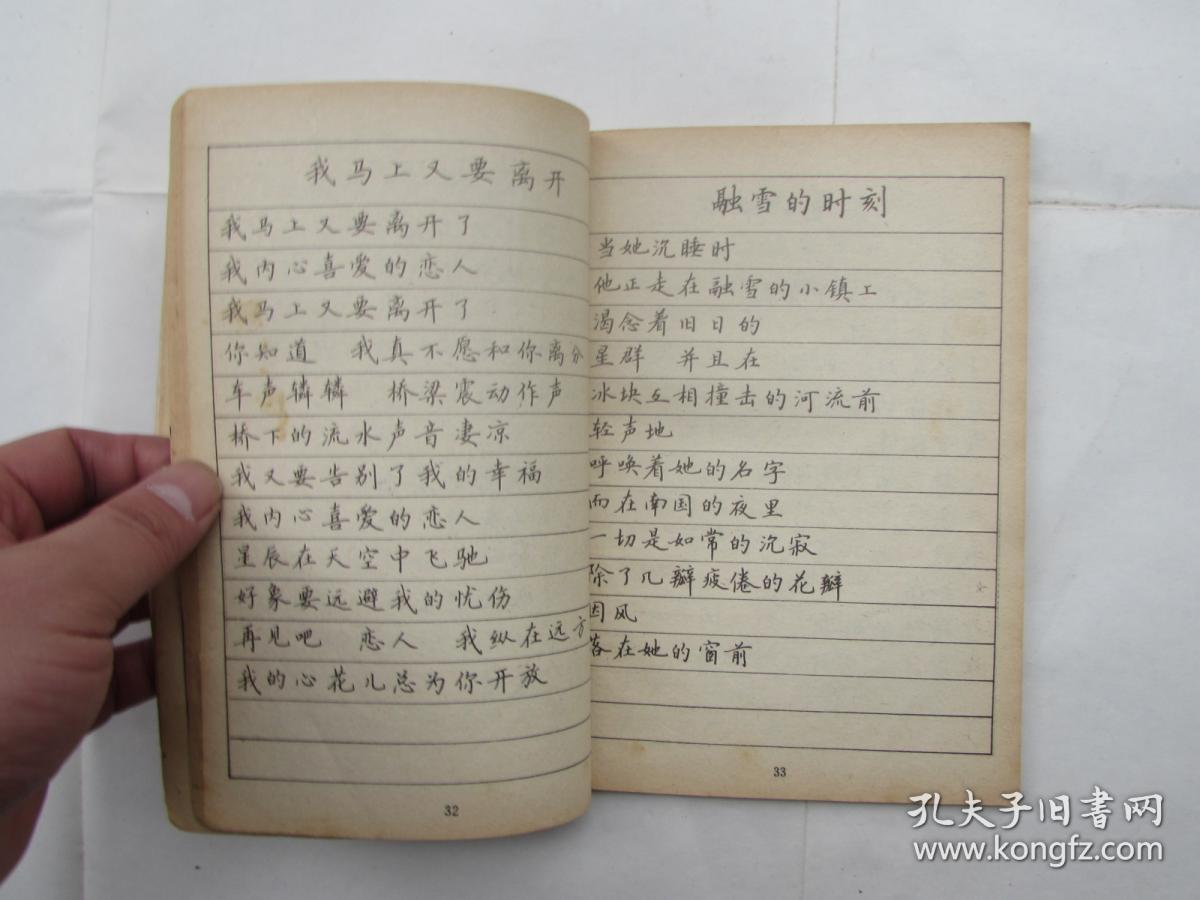 我马上又要离开
我马上又要离开了
我内心喜爱的恋人
我马上又要离开了
你知道　我真不愿和你离分
车声辚辚　桥梁震动作声
桥下的流水声音凄凉
我又要告别了我的幸福
我内心喜爱的恋人
星辰在天空中飞驰
好象要远避我的忧伤
再见吧　恋人　我纵在远方
我的心花儿总为你开放
32
融雪的时刻
当她沉睡时
他正走在融雪的小镇上
渴念着旧日的
星群　并且在
冰块互相撞击的河流前
轻声地
呼唤着她的名字
而在南国的夜里
一切是如常的沉寂
除了几瓣疲倦的花瓣
因风
落在她的窗前
33
孔夫子旧书网
www.kongfz.com